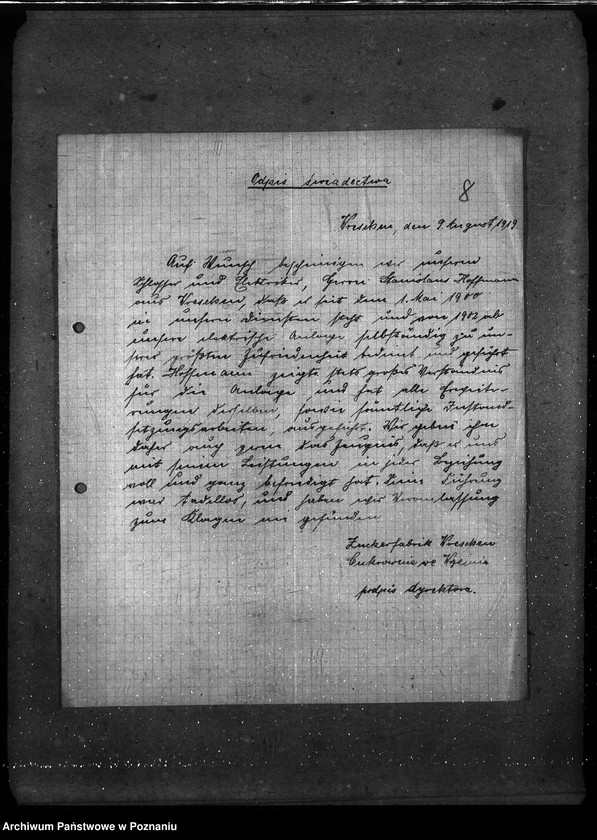 Odpis świadectwa
8
Wreschen, den 9. August 1919
Auf Wunsch bescheinigen wir unserem
Schlosser und Elektriker, Herrn Stanislaus Hoffmann
aus Wreschen, daß er seit dem 1. Mai 1900
in unseren Diensten steht und von 1902 ab
unsere elektrische Anlage selbständig zu un-
serer größten Zufriedenheit bedient und geführt
hat. Hoffmann zeigte stets großes Verständnis
für die Anlage und hat alle Erweite-
rungen derselben, sowie sämtliche Instand-
setzungsarbeiten, ausgeführt. Wir geben ihm
daher auch gern das Zeugnis, daß er uns
mit seinen Leistungen in jeder Beziehung
voll und ganz befriedigt hat, seine Führung
war tadellos, und haben wir Veranlassung
zum Klagen nie gefunden
Zuckerfabrik Wreschen
Cukrownia we Wrześni
podpis dyrektora.
Archiwum Państwowe w Poznaniu